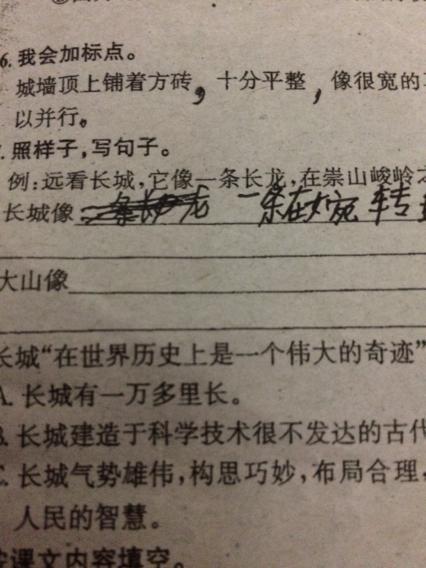 6. 我会加标点。
城墙顶上铺着方砖，十分平整，像很宽的
以并行。
照样子，写句子。
例：远看长城，它像一条长龙，在崇山峻岭
长城像 龙 一条在 宛转
大山像
长城“在世界历史上是一个伟大的奇迹”
A. 长城有一万多里长。
B. 长城建造于科学技术很不发达的古代
C. 长城气势雄伟，构思巧妙，布局合理，
人民的智慧。
按课文内容填空。